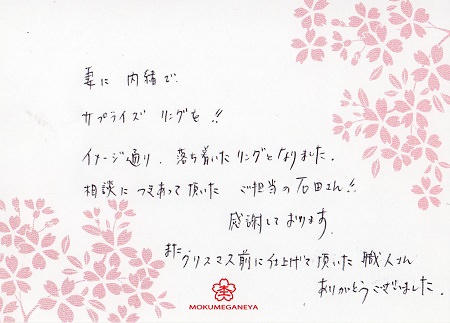 妻に 内緒で
サプライズ リングを!!
イメージ通り、落ち着いたリングとなりました。
相談に つきあって頂いた ご担当の石田さん!!
感謝しております。
また クリスマス前に仕上げて頂いた 職人さん
ありがとうございました。
杢
MOKUMEGANEYA